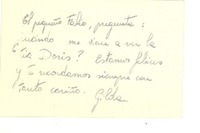 El pequeño Pablo, pregunta:
cuando me viene a ver la
tía Doris? Estamos felices
y te recordamos siempre con
tanto cariño. Gilda